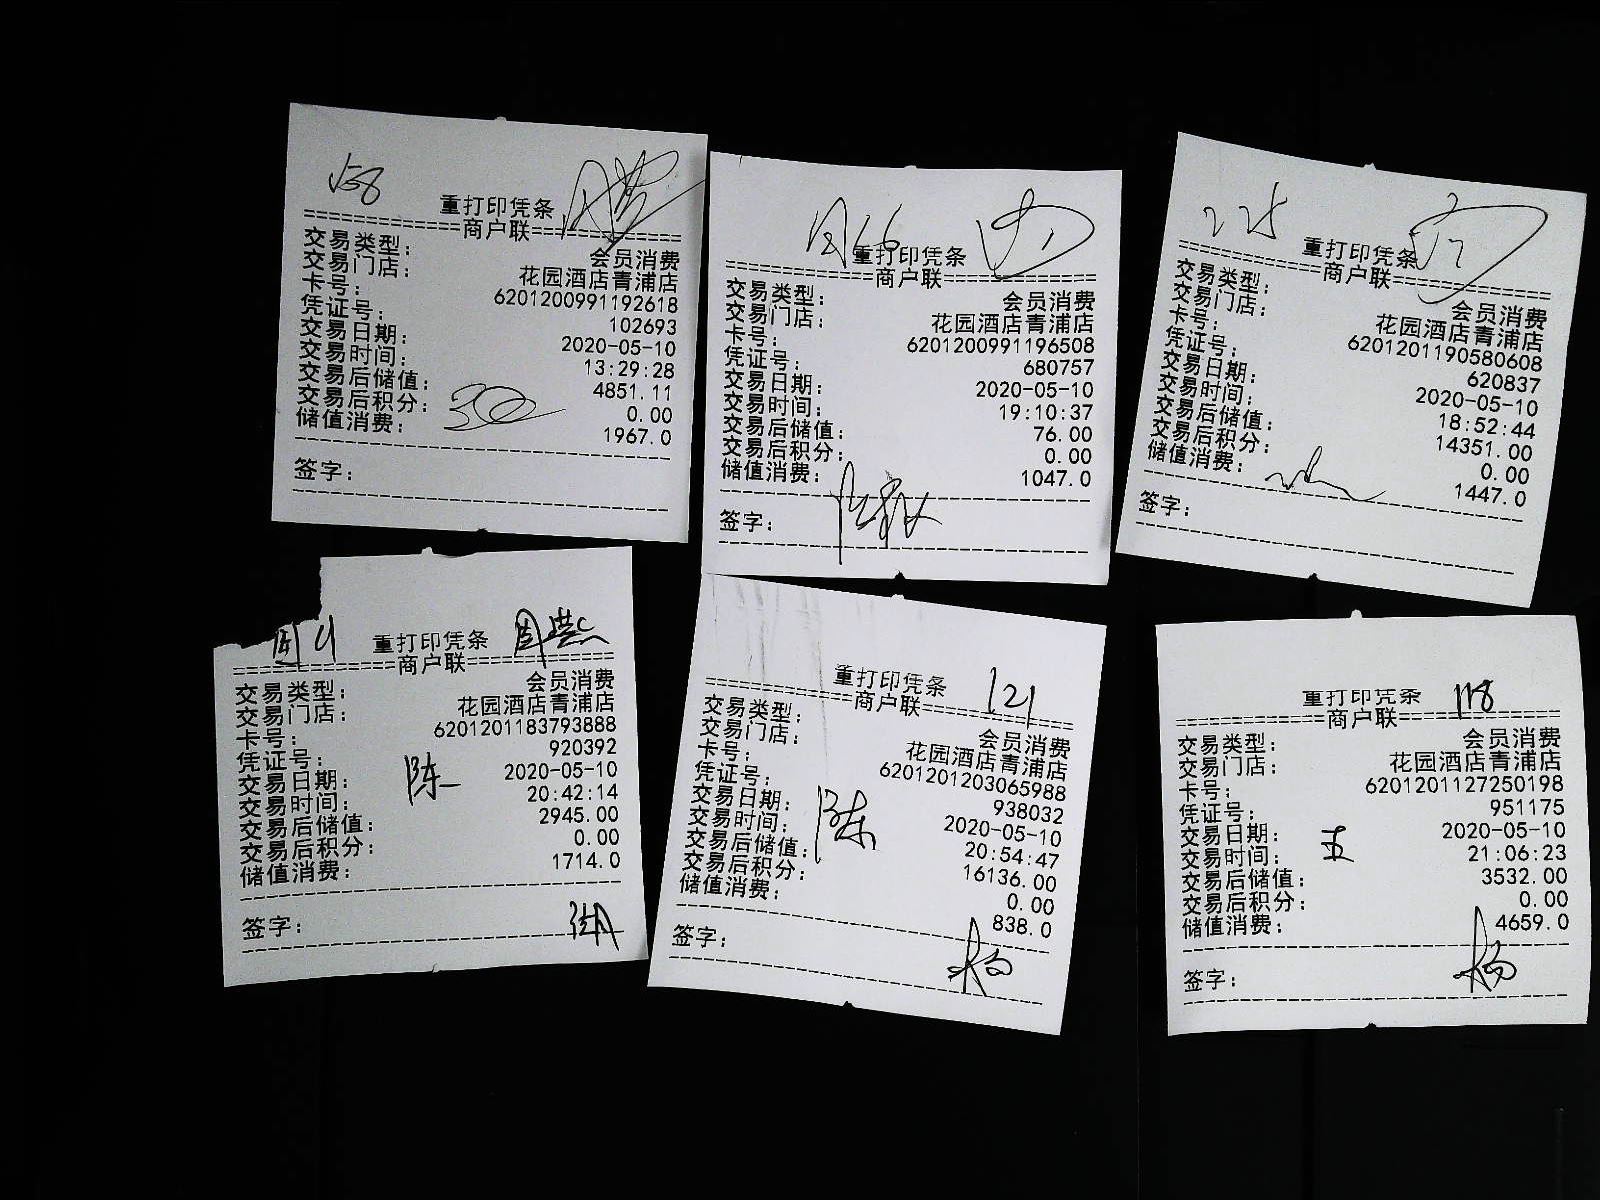 158
重打印凭条
商户联
交易类型: 会员消费
交易门店: 花园酒店青浦店
卡号: 6201200991192618
凭证号: 102693
交易日期: 2020-05-10
交易时间: 13:29:28
交易后储值: 4851.11
交易后积分: 0.00
储值消费: 1967.0
签字:
重打印凭条
商户联
交易类型: 会员消费
交易门店: 花园酒店青浦店
卡号: 6201200991196508
凭证号: 680757
交易日期: 2020-05-10
交易时间: 19:10:37
交易后储值: 76.00
交易后积分: 0.00
储值消费: 1047.0
签字:
225
重打印凭条
商户联
交易类型: 会员消费
交易门店: 花园酒店青浦店
卡号: 6201201190580608
凭证号: 620837
交易日期: 2020-05-10
交易时间: 18:52:44
交易后储值: 14351.00
交易后积分: 0.00
储值消费: 1447.0
签字:
重打印凭条 周燕
商户联
交易类型: 会员消费
交易门店: 花园酒店青浦店
卡号: 6201201183793888
凭证号: 920392
交易日期: 2020-05-10
陈
交易时间: 20:42:14
交易后储值: 2945.00
交易后积分: 0.00
储值消费: 1714.0
签字:
重打印凭条 121
商户联
交易类型: 会员消费
交易门店: 花园酒店青浦店
卡号: 6201201203065988
凭证号: 938032
交易日期: 2020-05-10
陈
交易时间: 20:54:47
交易后储值: 16136.00
交易后积分: 0.00
储值消费: 838.0
签字: 杨
重打印凭条 118
商户联
交易类型: 会员消费
交易门店: 花园酒店青浦店
卡号: 6201201127250198
凭证号: 951175
交易日期: 2020-05-10
交易时间: 21:06:23
交易后储值: 3532.00
交易后积分: 0.00
储值消费: 4659.0
签字: 杨